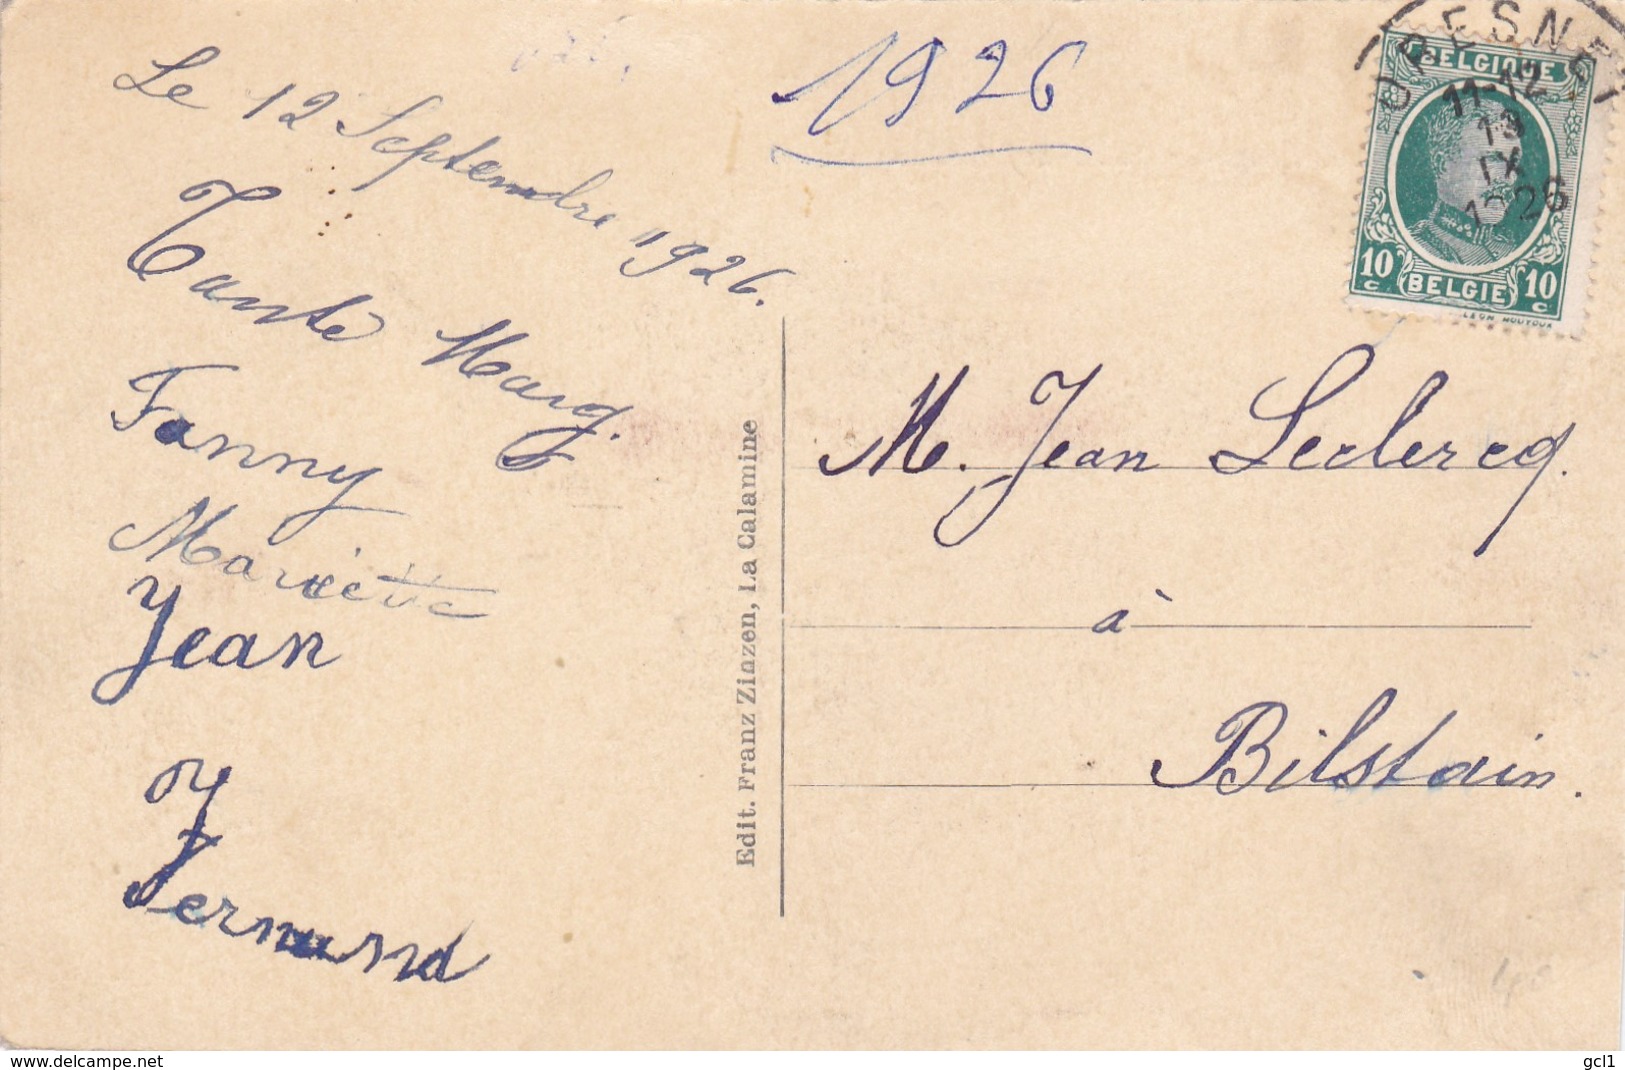 Le 12 Septembre 1926.
Tante Marg.
Fanny
Mariette
Jean
Fernand
1926
Edit. Franz Zinzen, La Calamine
11-12
13
IX
1926
BELGIQUE
10 c BELGIE 10 c
M. Jean Leclercq.
à
Bilstain.
delcampe.net
gcl1